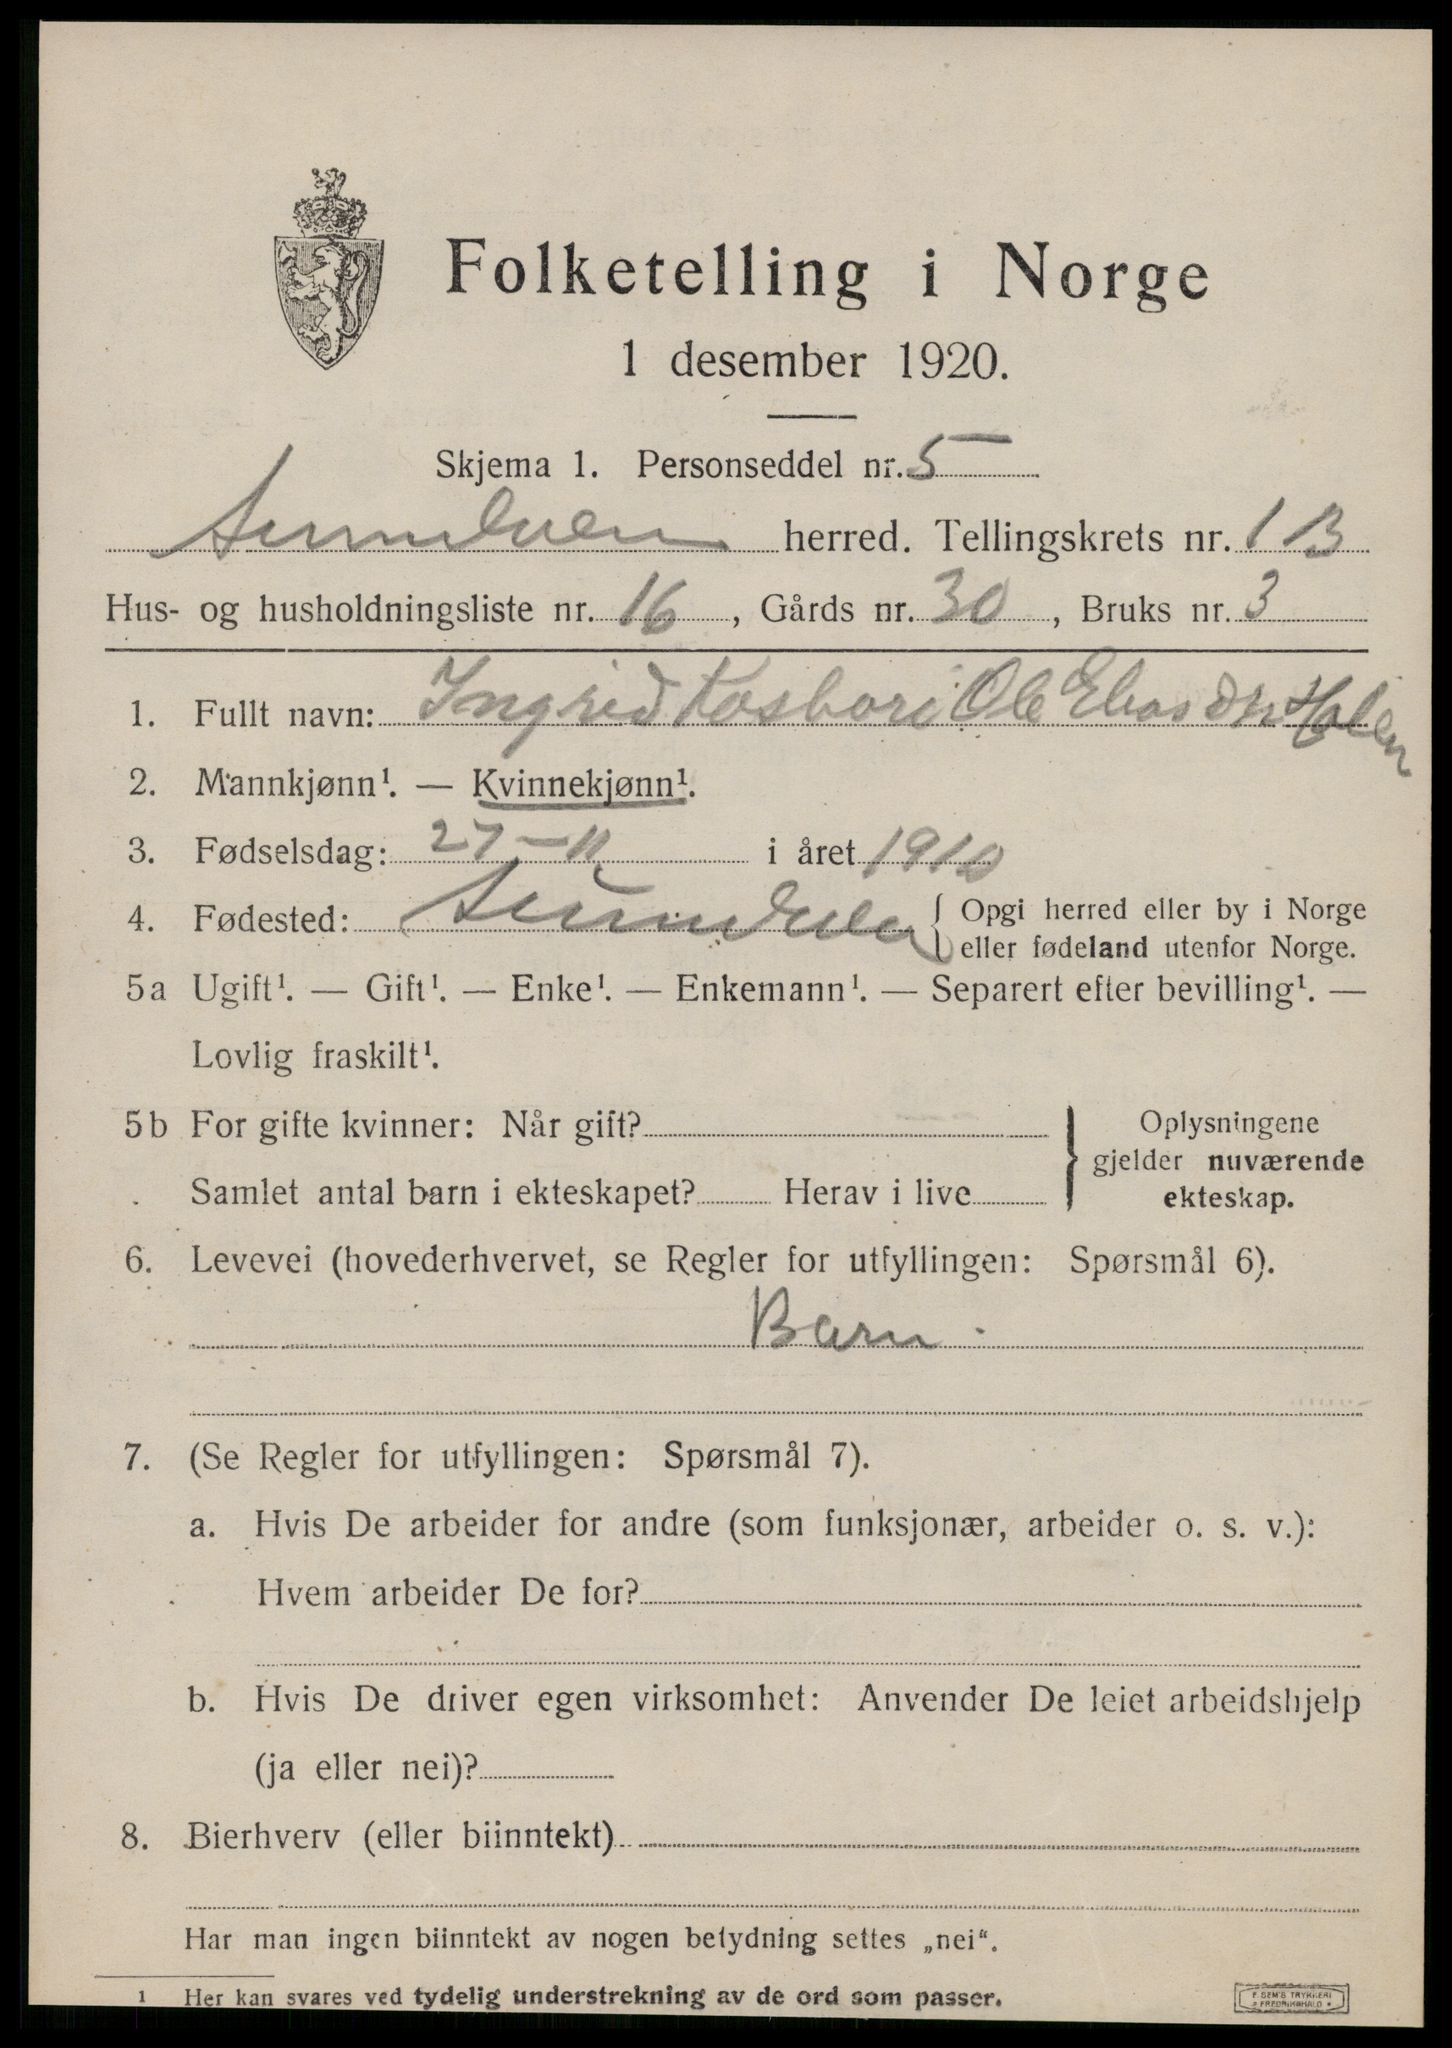 Folketelling i Norge
1 desember 1920.
Skjema 1. Personseddel nr. 5
herred. Tellingskrets nr. 1 B
Hus- og husholdningsliste nr. 16, Gårds nr. 30, Bruks nr. 3
1. Fullt navn: Ingrid Ole Elias Dtr Holen
2. Mannkjønn¹. — Kvinnekjønn¹.
3. Fødselsdag: 27-11 i året 1910
4. Fødested: { Opgi herred eller by i Norge
eller fødeland utenfor Norge.
5a Ugift¹. — Gift¹. — Enke¹. — Enkemann¹. — Separert efter bevilling¹. —
Lovlig fraskilt¹.
5b For gifte kvinner: Når gift? } Oplysningene
gjelder nuværende
Samlet antal barn i ekteskapet? Herav i live ekteskap.
6. Levevei (hovederhvervet, se Regler for utfyllingen: Spørsmål 6).
Barn.
7. (Se Regler for utfyllingen: Spørsmål 7).
a. Hvis De arbeider for andre (som funksjonær, arbeider o. s. v.):
Hvem arbeider De for?
b. Hvis De driver egen virksomhet: Anvender De leiet arbeidshjelp
(ja eller nei)?
8. Bierhverv (eller biinntekt)
Har man ingen biinntekt av nogen betydning settes „nei“.
¹ Her kan svares ved tydelig understrekning av de ord som passer.
F. SEM'S TRYKKERI
FREDRIKSHALD